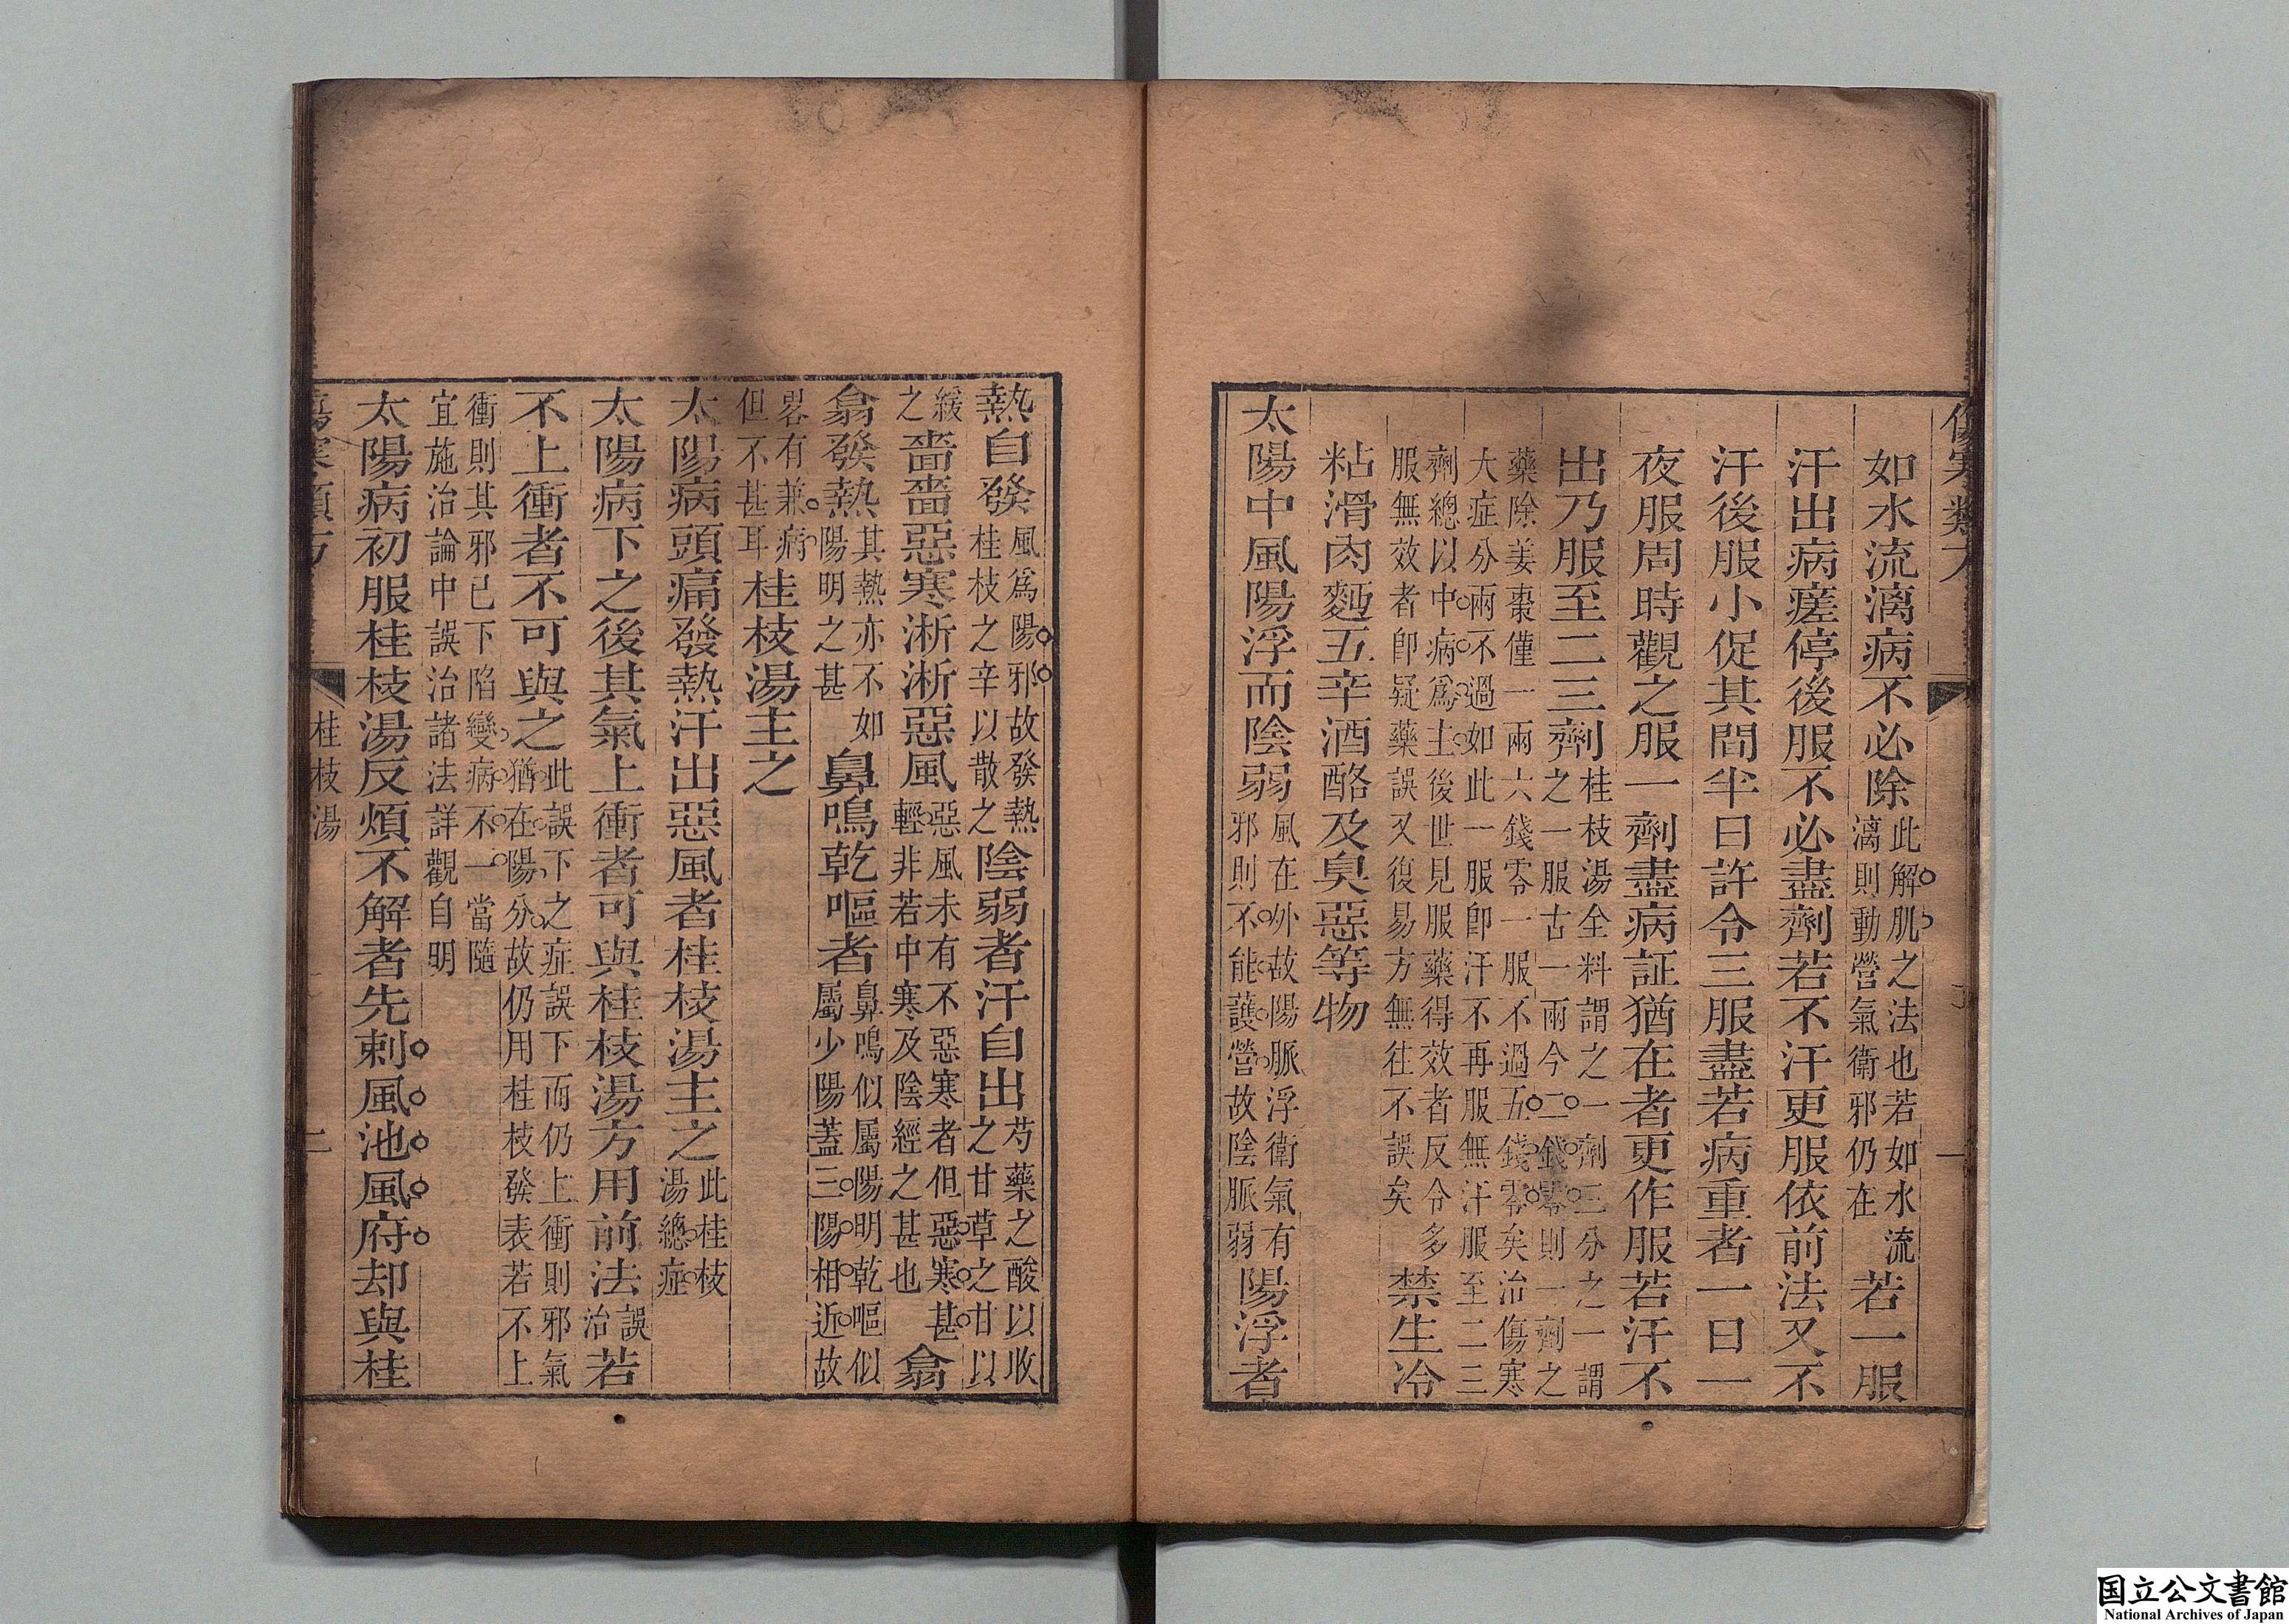 傷寒類方
如水流漓病不必除此解肌之法也若如水流
漓則動營氣衛邪仍在若一服
汗出病瘥停後服不必盡劑若不汗更服依前法又不
汗後服小促其間半日許令三服盡若病重者一日一
夜服周時觀之服一劑盡病証猶在者更作服若汗不
出乃服至二三劑桂枝湯全料謂之一劑三分之一謂
之一服古一兩今二錢零則一劑之
藥除姜棗僅一兩六錢零一服不過五錢零矣治傷寒
大症分兩不過如此一服卽汗不再服無汗服至二三
劑總以中病爲主後世見服藥得效者反令多
服無效者卽疑藥誤又復易方無往不誤矣禁生冷
粘滑肉麪五辛酒酪及臭惡等物
太陽中風陽浮而陰弱風在外故陽脈浮衛氣有
邪則不能護營故陰脈弱陽浮者
熱自發風爲陽邪故發熱
桂枝之辛以散之陰弱者汗自出芍藥之酸以收
之甘草之甘以
緩
之嗇嗇惡寒淅淅惡風惡風未有不惡寒者但惡寒甚
輕非若中寒及陰經之甚也翕
翕發熱其熱亦不如
陽明之甚鼻鳴乾嘔者鼻鳴似屬陽明乾嘔似
屬少陽蓋三陽相近故
畧有兼病
但不甚耳桂枝湯主之
太陽病頭痛發熱汗出惡風者桂枝湯主之此桂枝
湯總症
太陽病下之後其氣上衝者可與桂枝湯方用前法誤
治若
不上衝者不可與之此誤下之症誤下而仍上衝則邪氣
猶在陽分故仍用桂枝發表若不上
衝則其邪已下陷變病不一當隨
宜施治論中誤治諸法詳觀自明
太陽病初服桂枝湯反煩不解者先刺風池風府却與桂
傷寒類方
桂枝湯
二
国立公文書館
National Archives of Japan